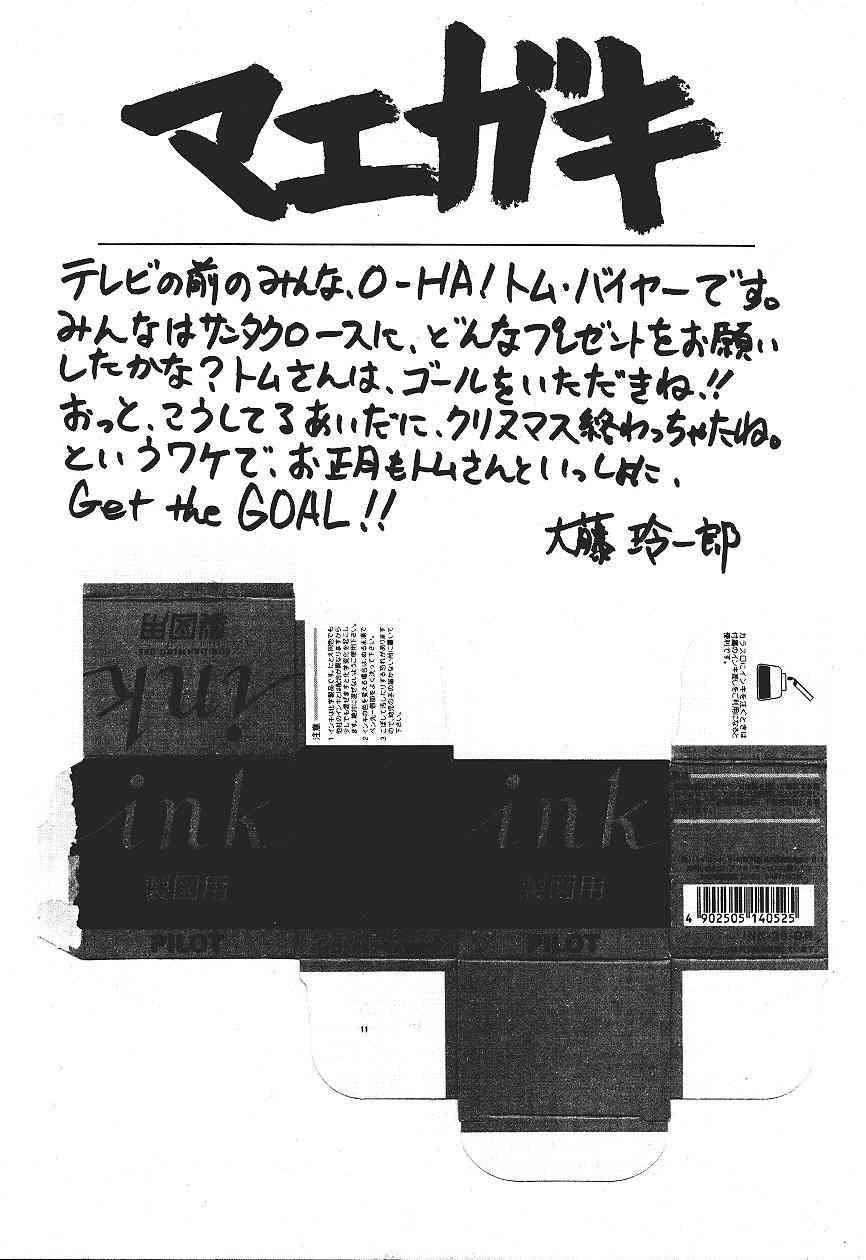 マエガキ
テレビの前のみんな、O-HA!トム・バイヤーです。
みんなはサンタクロースに、どんなプレゼントをお願い
したかな?トムさんは、ゴールをいただきね!!
おっと、こうしてるあいだに、クリスマス終わっちゃたね。
というワケで、お正月もトムさんといっしょに、
Get the GOAL!!
大藤 玲一郎
製図用
ink
注意
カラス口にインキを注ぐときは
付属のインキ差しをご利用になると
便利です。
ink
製図用
PILOT
ink
製図用
PILOT
4 902505 140525
11